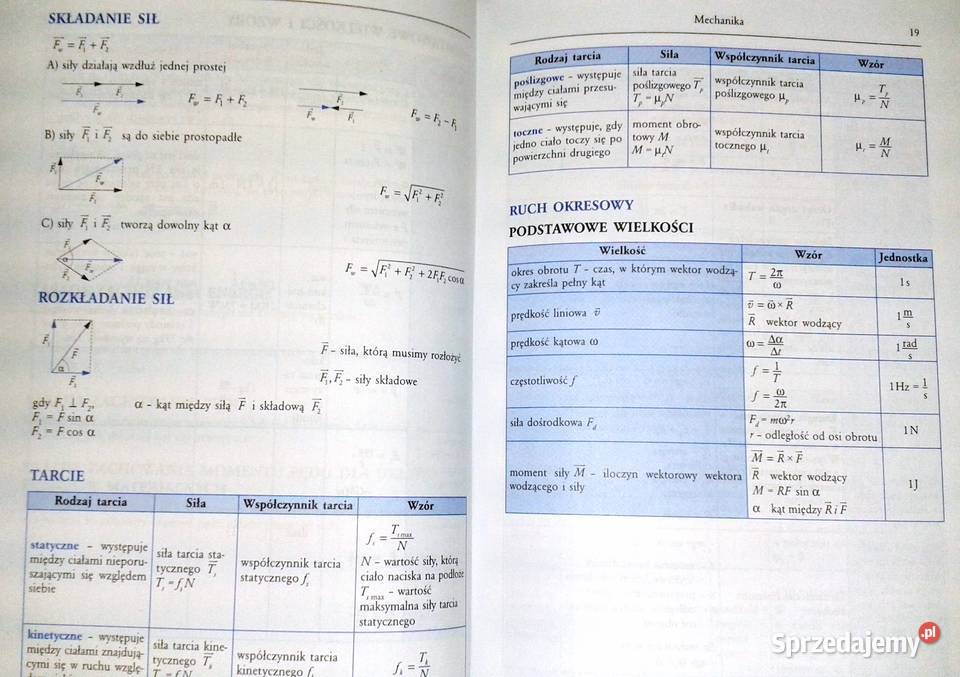 SKŁADANIE SIŁ
F_w = F_1 + F_2
A) siły działają wzdłuż jednej prostej
F_1 F_2
F_w
F_w = F_1 + F_2
F_2
F_w F_1
F_w = F_2 - F_1
B) siły F_1 i F_2 są do siebie prostopadłe
F_1
F_w
F_2
F_w = √F_1² + F_2²
C) siły F_1 i F_2 tworzą dowolny kąt α
F_1
α F_w
F_2
F_w = √F_1² + F_2² + 2F_1F_2 cos α
ROZKŁADANIE SIŁ
F_1
F
α
F_2
F - siła, którą musimy rozłożyć
F_1, F_2 - siły składowe
gdy F_1 ⊥ F_2, α - kąt między siłą F i składową F_2
F_1 = F sin α
F_2 = F cos α
TARCIE
Rodzaj tarcia Siła Współczynnik tarcia Wzór
statyczne - występuje
między ciałami nieporu-
szającymi się względem
siebie
siła tarcia sta-
tycznego T_s
T_s = f_s N
współczynnik tarcia
statycznego f_s
f_s = T_s max / N
N - wartość siły, którą
ciało naciska na podłoże
T_s max - wartość
maksymalna siły tarcia
statycznego
kinetyczne - występuje
między ciałami znajdują-
cymi się w ruchu wzglę-
siła tarcia kine-
tycznego T_k
współczynnik tarcia
kinetycznego f_k
f_k = T_k / N
Mechanika
19
Rodzaj tarcia Siła Współczynnik tarcia Wzór
poślizgowe - występuje
między ciałami przesu-
wającymi się
siła tarcia
poślizgowego T_p
T_p = μ_p N
współczynnik tarcia
poślizgowego μ_p
μ_p = T_p / N
toczne - występuje, gdy
jedno ciało toczy się po
powierzchni drugiego
moment obro-
towy M
M = μ_t N
współczynnik tarcia
tocznego μ_t
μ_t = M / N
RUCH OKRESOWY
PODSTAWOWE WIELKOŚCI
Wielkość Wzór Jednostka
okres obrotu T - czas, w którym wektor wodzą-
cy zakreśla pełny kąt
T = 2π / ω
1 s
prędkość liniowa v
v = ω × R
R wektor wodzący
1 m / s
prędkość kątowa ω
ω = Δα / Δt
1 rad / s
częstotliwość f
f = 1 / T
f = ω / 2π
1 Hz = 1 / s
siła dośrodkowa F_d
F_d = mω²r
r - odległość od osi obrotu
1 N
moment siły M - iloczyn wektorowy wektora
wodzącego i siły
M = R × F
R wektor wodzący
M = RF sin α
α kąt między R i F
1 J
Sprzedajemy.pl